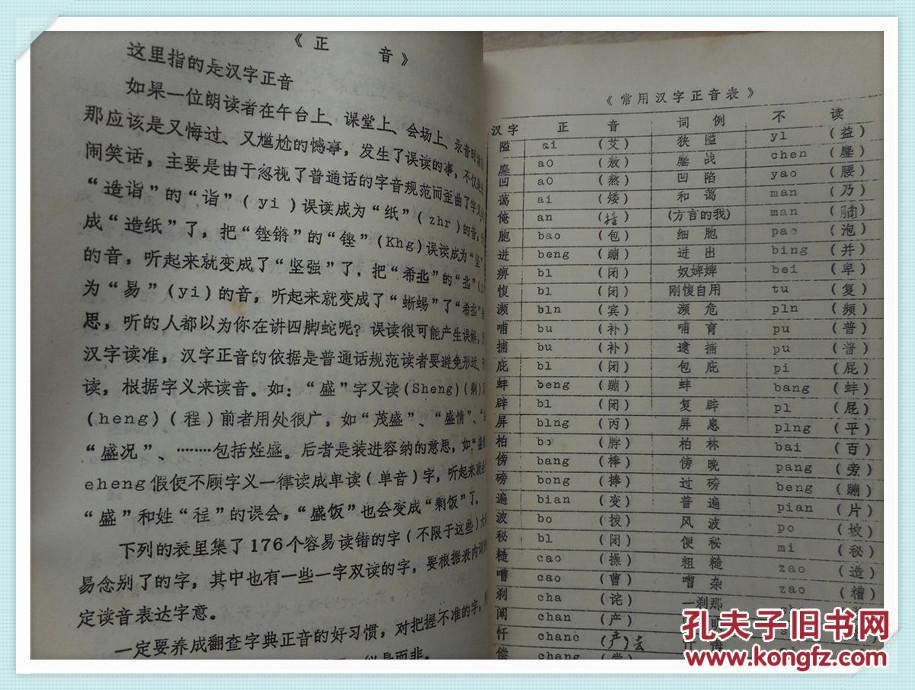 《正 音》
这里指的是汉字正音
如果一位朗读者在午台上、课堂上、会场上、
那应该是又悔过、又尴尬的憾事，发生了误读的事，不仅
闹笑话，主要是由于忽视了普通话的字音规范而歪曲了字义
“造诣”的“诣”(yi)误读成为“纸”(zhr)的音，
成“造纸”了，把“铿锵”的“铿”(Khg)误读成为“坚”
的音，听起来就变成了“坚强”了，把“希
为“易”(yi)的音，听起来就变成了“蜥蜴”了
思，听的人都以为你在讲四脚蛇呢？误读很可能产生误解，
汉字读准，汉字正音的依据是普通话规范读者要避免形近、
读，根据字义来读音。如：“盛”字又读(Sheng)(剩)
(heng)(程)前者用处很广，如“茂盛”、“盛情”、
“盛况”、………包括姓盛。后者是装进容纳的意思，如
eheng假使不顾字义一律读成单读(单音)字，听起来就
“盛”和姓“程”的误会，“盛饭”也会变成“剩饭”了，
下列的表里集了176个容易读错的字(不限于这些)
易念别了的字，其中也有一些一字双读的字，要根据表内
定读音表达字意。
一定要养成翻查字典正音的好习惯，对把握不准的字，
似是而非。
《常用汉字正音表》
汉字 正 音 词 例 不 读
隘 ai (艾) 狭隘 yl (益)
鏖 aO (敖) 鏖战 chen (塵)
凹 aO (熬) 凹陷 yao (腰)
蔼 ai (矮) 和蔼 man (乃)
俺 an (方言的我) man
胞 bao (包) 细胞 pao (泡)
迸 beng (蹦) 迸出 bing (并)
痹 bl (闭) bei (卑)
愎 bl (闭) 刚愎自用 tu (复)
濒 bln (宾) 濒危 pln (频)
哺 bu (补) 哺育 pu (普)
捕 bu (补) 逮捕 pu (普)
庇 bl (闭) 包庇 pi (屁)
蚌 beng (蹦) 蚌 bang (蚌)
辟 bl (闭) 复辟 pl (屁)
屏 bing (丙) 屏息 ping (平)
柏 bo (脖) 柏林 bai (百)
傍 bang (棒) 傍晚 pang (旁)
磅 bong 过磅 beng (蹦)
遍 bian (变) 普遍 pian (片)
波 bo (拨) 风波 po (坡)
秘 bl (闭) 便秘 mi (秘)
糙 cao (操) 粗糙 zao (造)
嘈 cao (曹) 嘈杂 zao (糟)
刹 cha (诧) 一刹那
阐 chan (产)
忏 chanc (产)去
偿 chang
孔夫子旧书网
www.kongfz.com